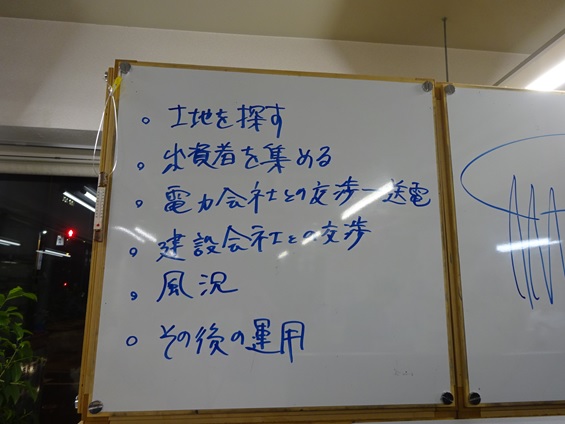 。土地を探す
。出資者を集める
。電力会社との交渉ー送電
。建設会社との交渉
。風況
。その後の運用